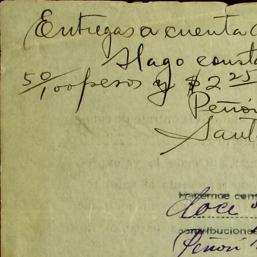 Entregas a cuenta
Hago consta
50/100 pesos y $ 2 25
Peñón
Sant
doce
contribuciones
Peñón